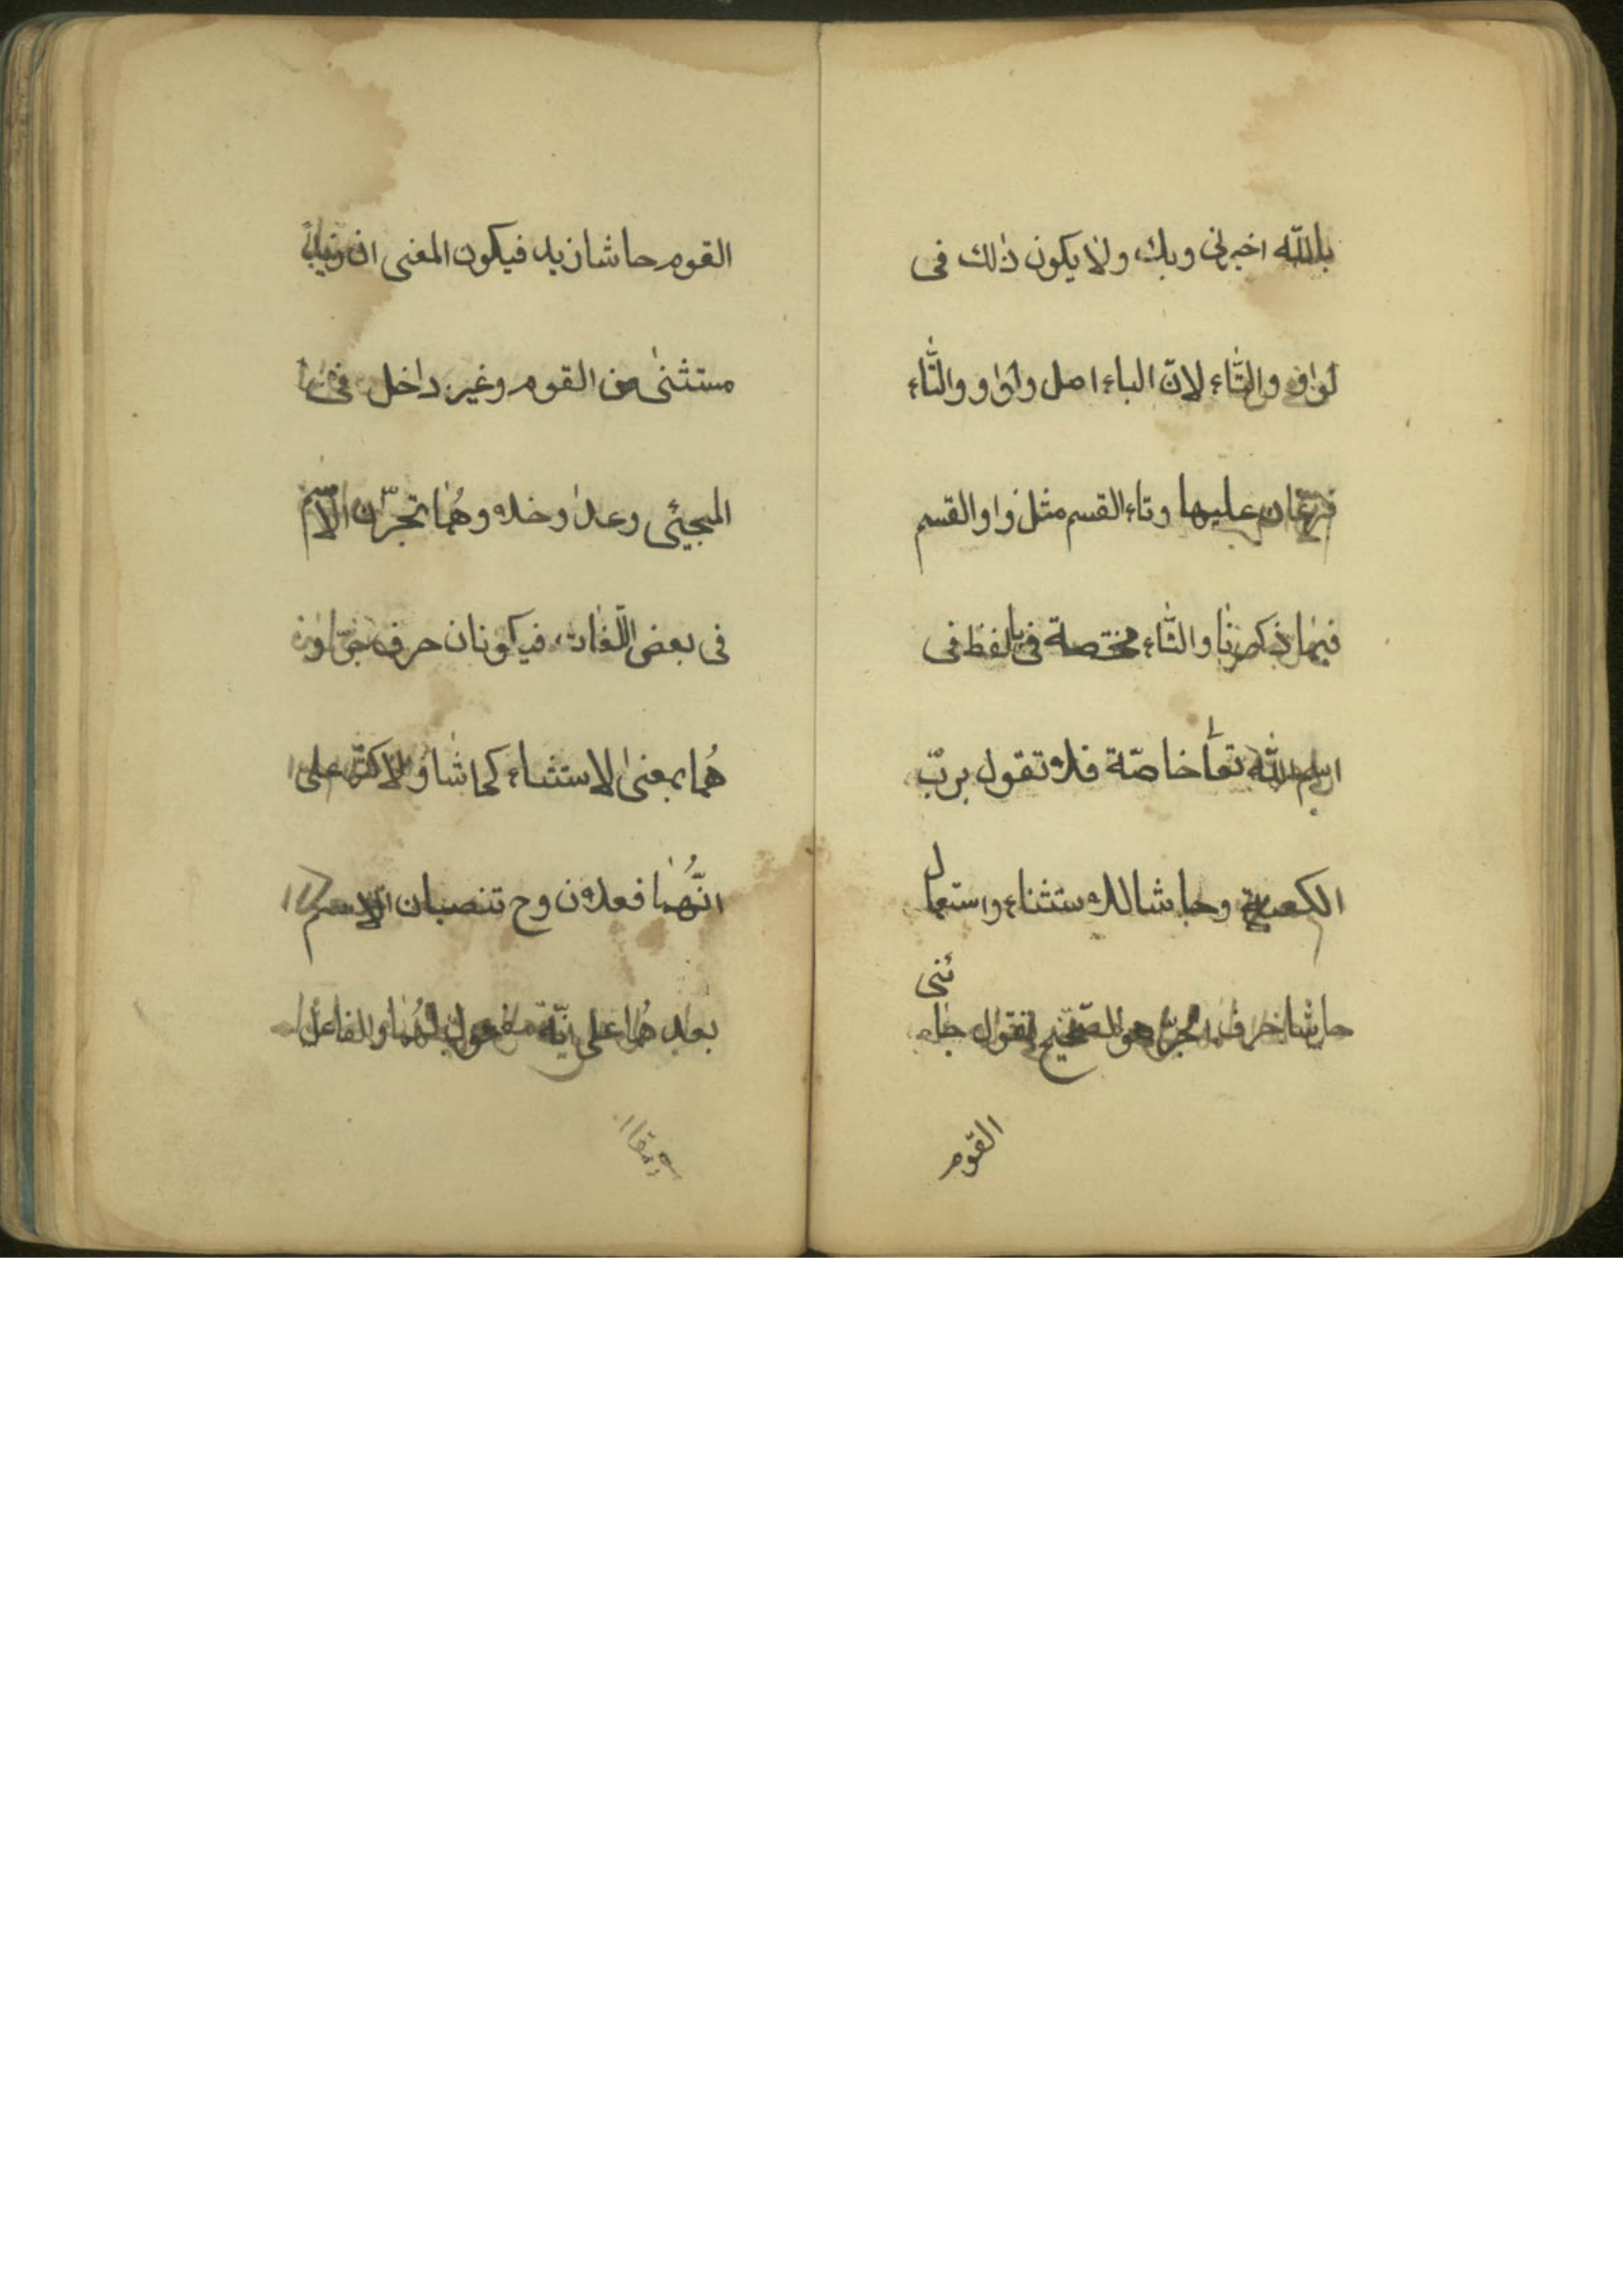 بالله اخبرنى وبك ولا يكون ذلك فى
لواو والتّاء لانّ الباء اصل والواو والتّاء
فرعان عليها وتاء القسم مثل واو القسم
فيما ذكرنا والتّاء مختصة فى باللفظ فى
اسم الله تعا خاصّة فلا تقول بربّ
الكعبة وحاشا للاستثناء واستعمال
حاشا حرف الجرّ هو الصّحيح تقول جاء ئنى
القوم
القوم حاشا زيد فيكون المعنى ان زيدا
مستثنى من القوم وغير داخل فى
المجيئى وعدا وخلا وهُما تجرّان الاسم
فى بعض اللّغات فيكونان حرف جرّ
هُما بمعنى الاستثناء كحاشا والاكثر على
انّهُما فعلان وح تنصبان الاسم
بعد هُما على انّه مفعول لهُما والفاعل